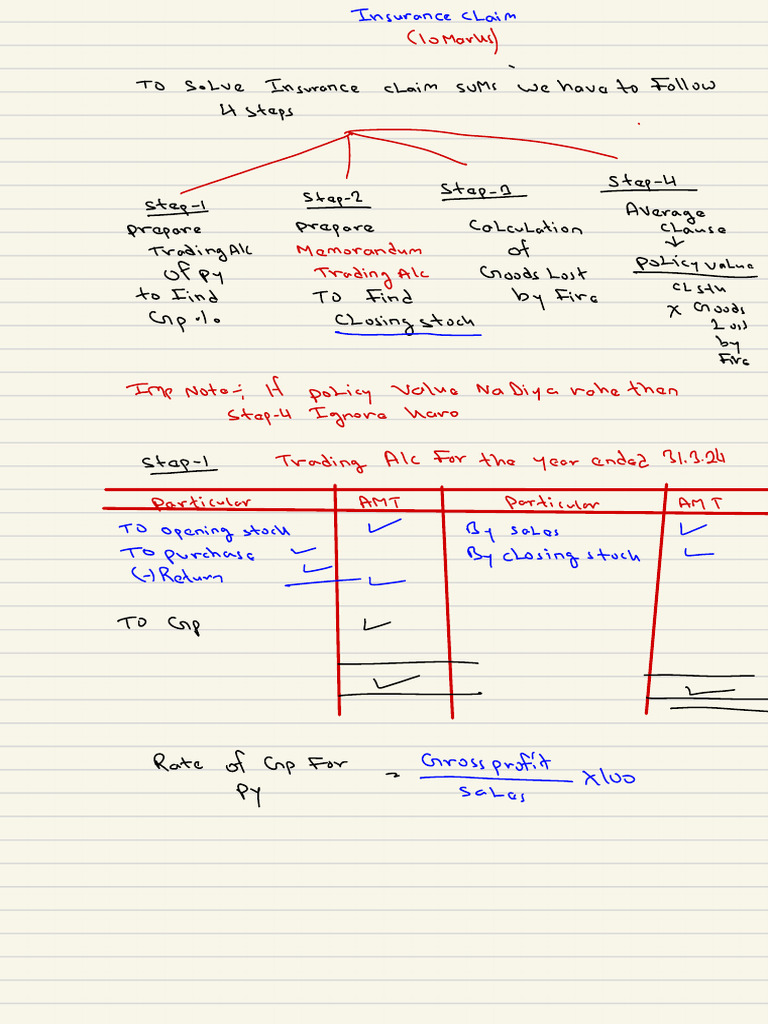 Insurance Claim
(10 Marks)
To Solve Insurance claim sums we have to Follow
4 steps
Step-1
Prepare
Trading A/c
of Py
to Find
Gp %
Step-2
Prepare
Memorandum
Trading A/c
To Find
Closing stock
Step-3
Calculation
of
Goods Lost
by Fire
Step-4
Average
Clause
↓
Policy value
Cl stk
x Goods
Lost
by
Fire
Imp Note:- If policy value Na Diya rahe then
Step-4 Ignore karo
Step-1 Trading A/c For the year ended 31.3.24
Particular AMT Particular AMT
To opening stock ✓ By sales ✓
To purchase ✓ By closing stock ✓
(-) Return ✓ ✓
To Gp ✓
✓ ✓
Rate of Gp For Py = Gross profit
Sales x100